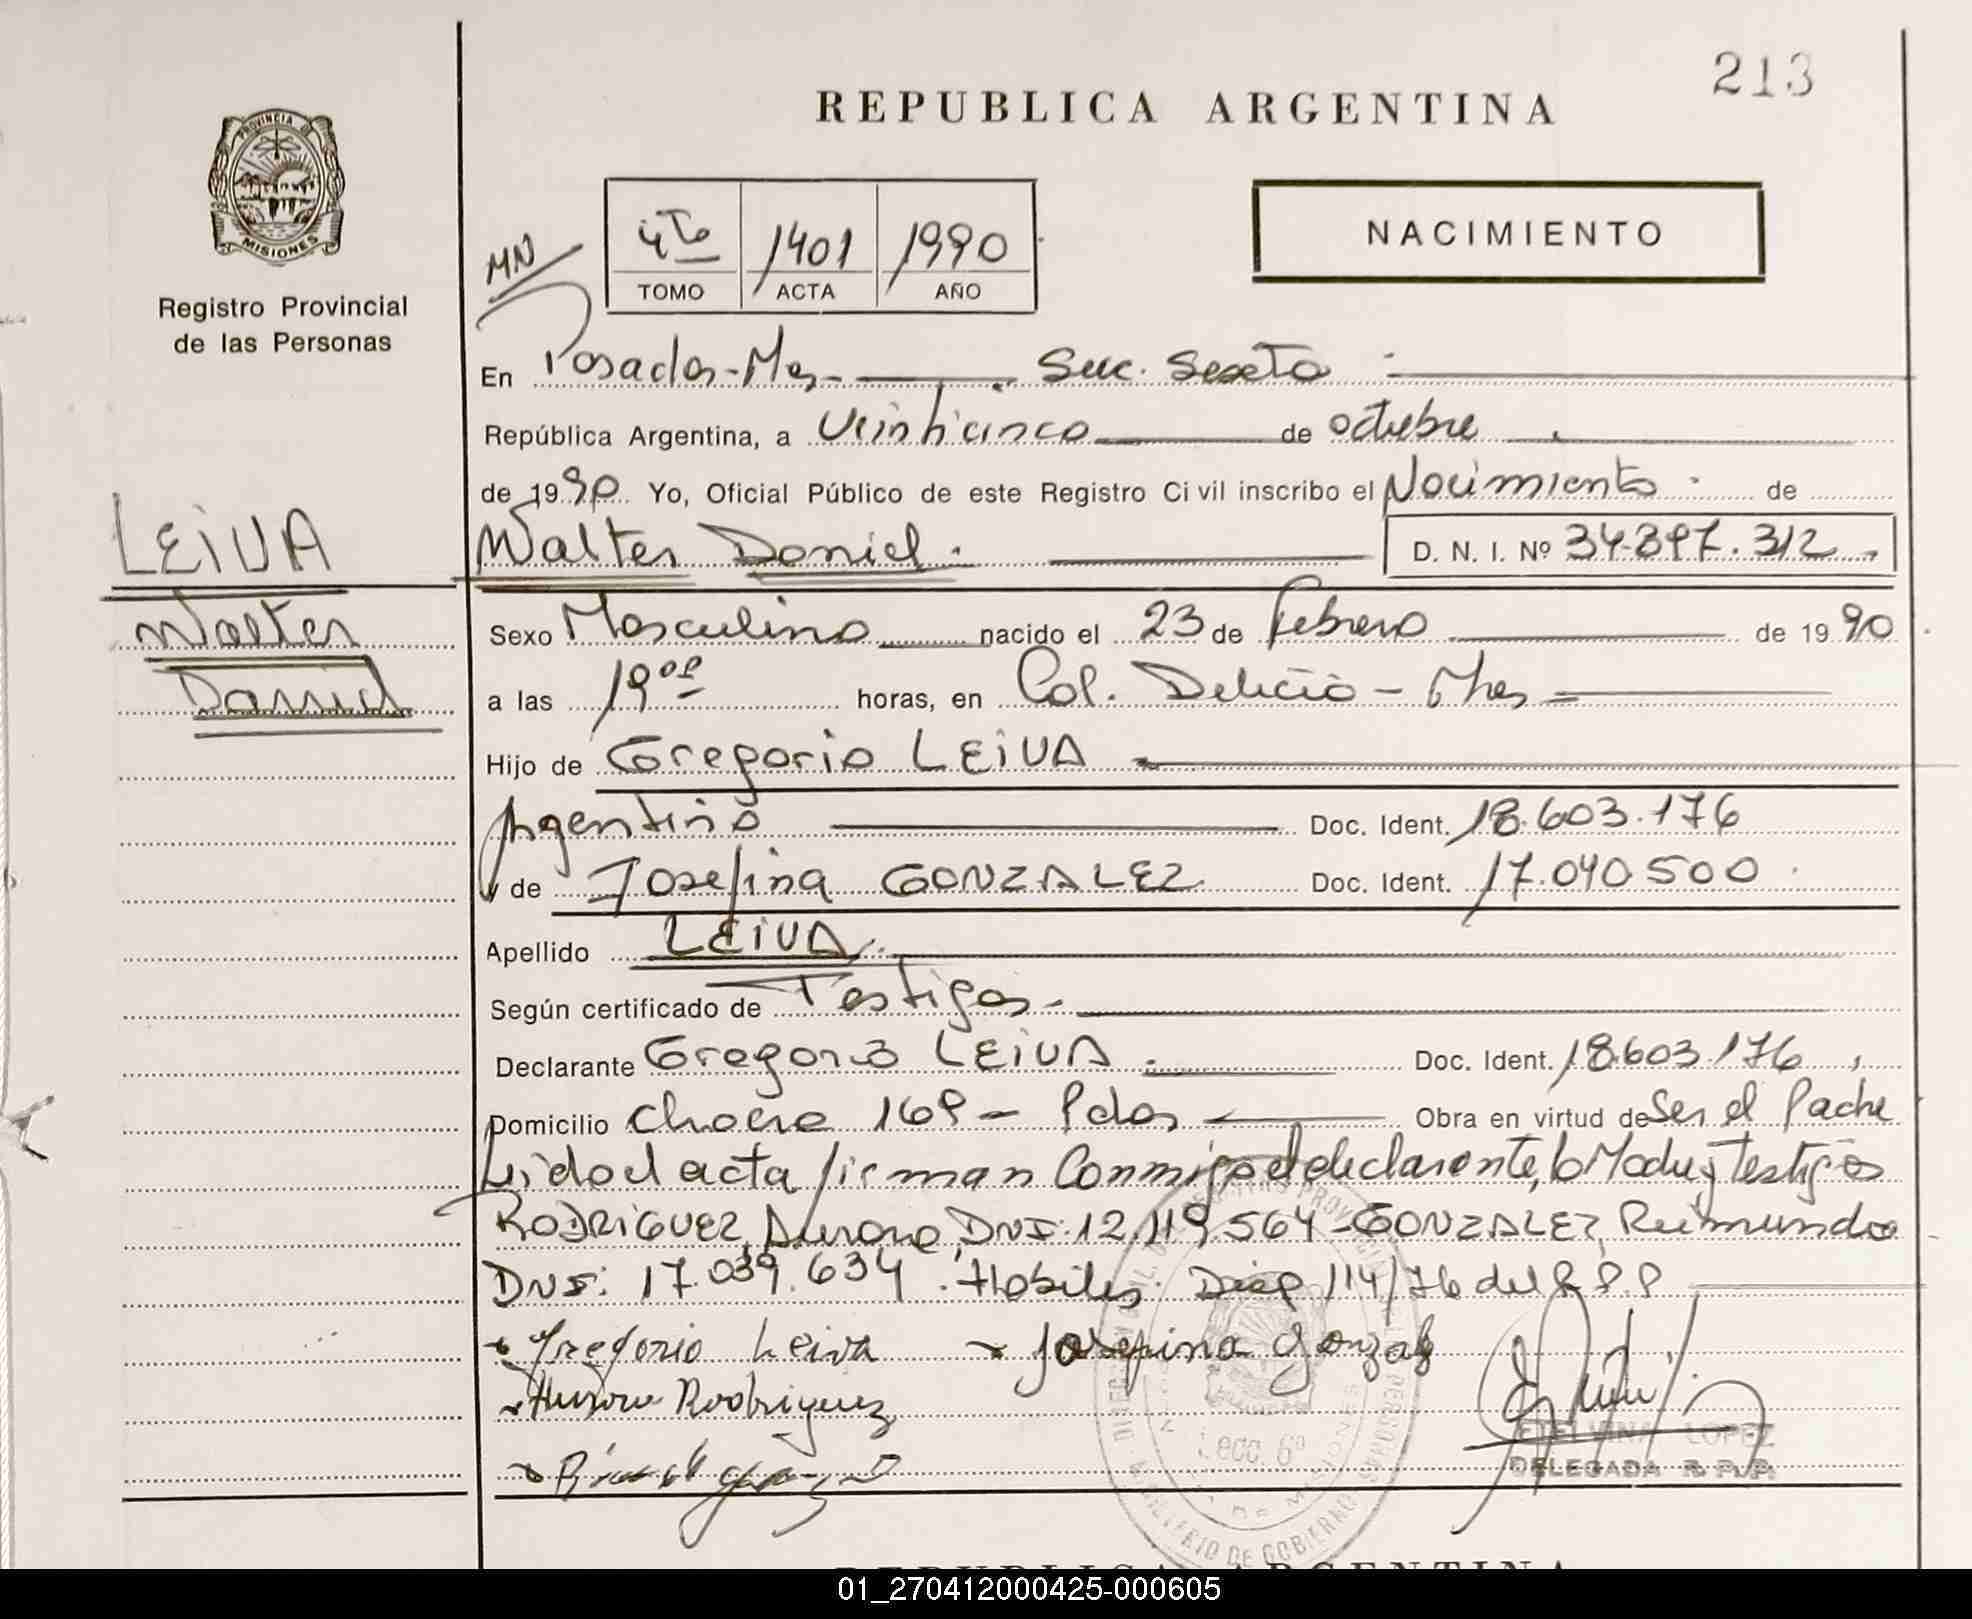 213
REPUBLICA ARGENTINA
PROVINCIA DE
MISIONES
Registro Provincial
de las Personas
MN
4to 1401 1990
TOMO ACTA AÑO
NACIMIENTO
En Posadas-Mes- Secc. Sexta
República Argentina, a Veinticinco de octubre
de 1990 Yo, Oficial Público de este Registro Civil inscribo el Nacimiento de
LEIVA
Walter Daniel. D. N. I. Nº 34.397.312
Walter
Daniel
Sexo Masculino nacido el 23 de Febrero de 1990
a las 19 horas, en Col. Delicia - Mnes
Hijo de Gregorio LEIVA
Argentino Doc. Ident. 18.603.176
y de Josefina GONZALEZ Doc. Ident. 17.040.500
Apellido LEIVA
Según certificado de Testigos-
Declarante Gregorio LEIVA Doc. Ident. 18.603.176
Domicilio 169 - Pdas Obra en virtud de Ser el Padre
Leido el acta firman Conmigo el declarante, la Madre y Testigos
RODRIGUEZ, Aurora, DNI: 12.119.564 - GONZALEZ, Reimundo
DNI: 17.039.634. Habiles. Disp 114/76 del R.P.P
Gregorio Leiva Josefina Gonzalez
Aurora Rodriguez
Secc 6º
MINISTERIO DE GOBIERNO
ETELVINA LOPEZ
DELEGADA R.P.P.
REPUBLICA ARGENTINA
01_270412000425-000605